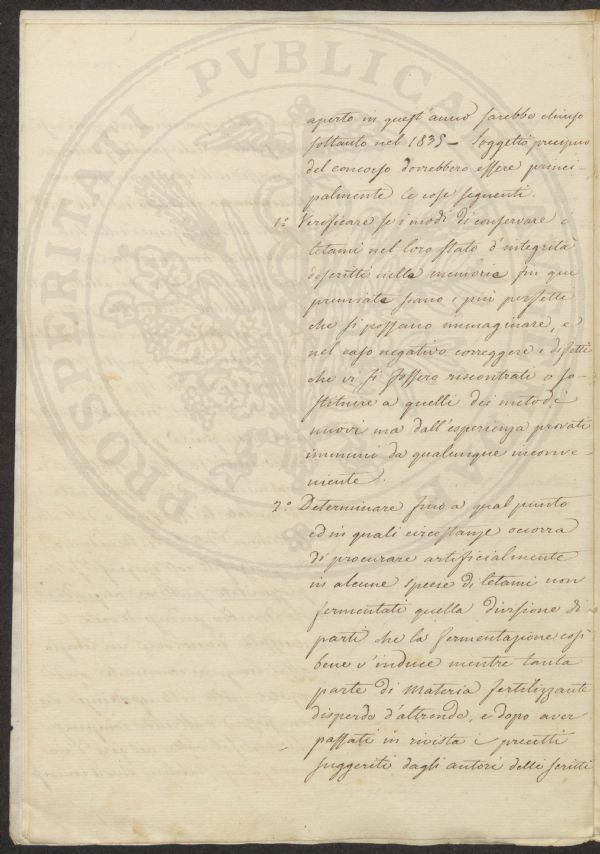 PROSPERITATI PVBLICAE
aperto in quest'anno sarebbe chiuso
soltanto nel 1835 – Soggetto precipuo
del concorso dovrebbero essere princi-
palmente le cose seguenti.
1.º Verificare se i modi di conservare i
letami nel loro stato d'integrità
descritti nella memoria fin qui
premiata siano i più perfetti
che si possano immaginare, e
nel caso negativo correggere i difetti
che vi si fossero riscontrati o so-
stituire a quelli dei metodi
nuovi ma dall'esperienza provati
immuni da qualunque inconve-
niente.
2.º Determinare fino a qual punto
ed in quali circostanze occorra
di procurare artificialmente
in alcune specie di letami non
fermentati quella divisione di
parti che la fermentazione così
bene v'induce mentre tanta
parte di materia fertilizzante
disperde d'altronde, e dopo aver
passati in rivista i precetti
suggeriti dagli autori delli scritti